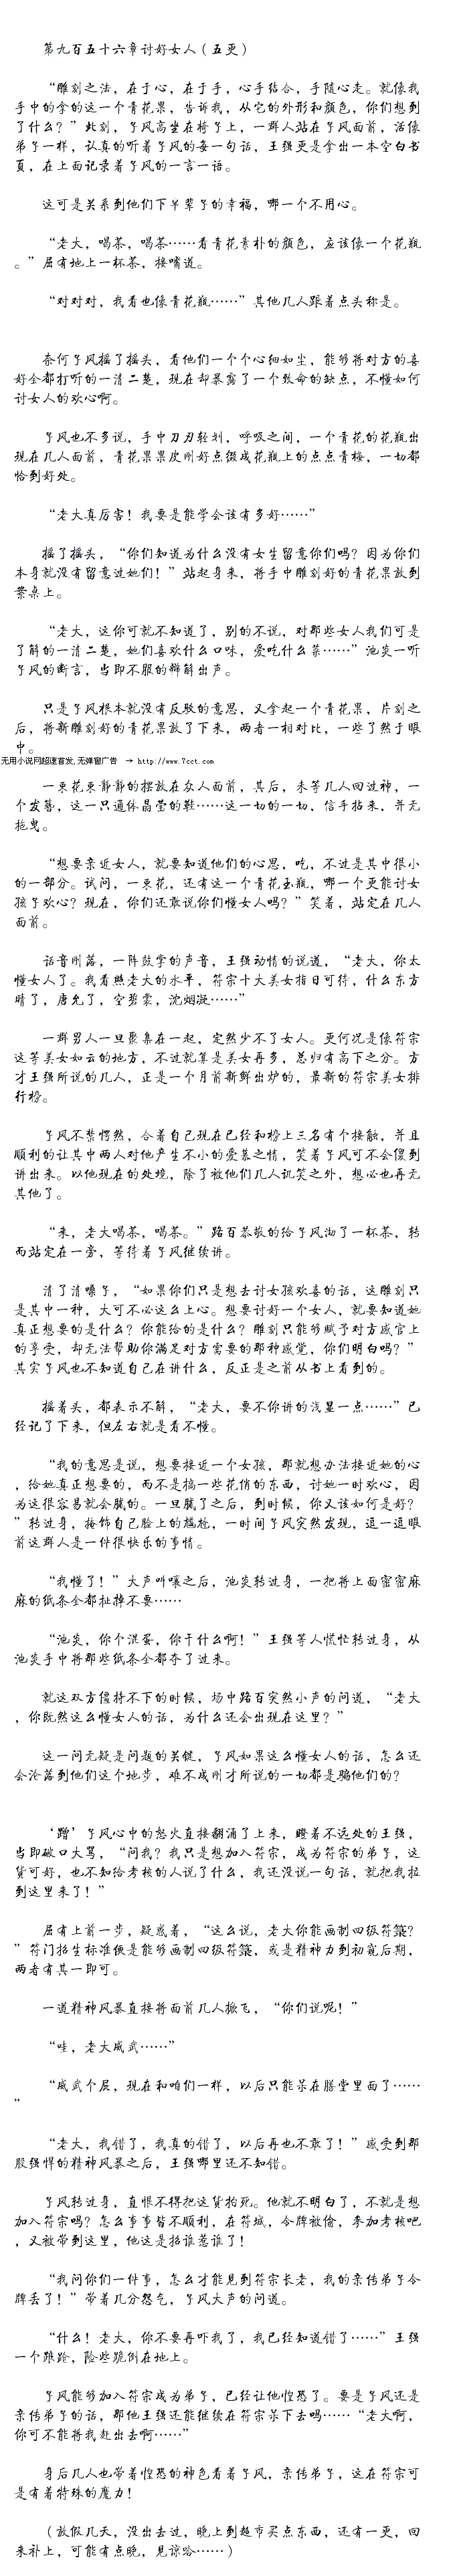 第九百五十六章讨好女人（五更）
“雕刻之法，在于心，在于手，心手结合，手随心走。就像我
手中的拿的这一个青花果，告诉我，从它的外形和颜色，你们想到
了什么？”此刻，于风高坐在椅子上，一群人站在于风面前，活像
弟子一样，认真的听着于风的每一句话，王强更是拿出一本空白书
页，在上面记录着于风的一言一语。
这可是关系到他们下半辈子的幸福，哪一个不用心。
“老大，喝茶，喝茶……看青花素朴的颜色，应该像一个花瓶
。”屈有地上一杯茶，接嘴道。
“对对对，我看也像青花瓶……”其他几人跟着点头称是。
奈何于风摇了摇头，看他们一个个心细如尘，能够将对方的喜
好全都打听的一清二楚，现在却暴露了一个致命的缺点，不懂如何
讨女人的欢心啊。
于风也不多说，手中刀刃轻划，呼吸之间，一个青花的花瓶出
现在几人面前，青花果果皮刚好点缀成花瓶上的点点青梅，一切都
恰到好处。
“老大真厉害！我要是能学会该有多好……”
摇了摇头，“你们知道为什么没有女生留意你们吗？因为你们
本身就没有留意过她们！”站起身来，将手中雕刻好的青花果放到
案桌上。
“老大，这你可就不知道了，别的不说，对那些女人我们可是
了解的一清二楚，她们喜欢什么口味，爱吃什么菜……”池炎一听
于风的断言，当即不服的辩解出声。
只是于风根本就没有反驳的意思，又拿起一个青花果，片刻之
后，将新雕刻好的青花果放了下来，两者一相对比，一些了然于眼
中。
无用小说网超速首发,无弹窗广告 → http://www.7cct.com
一束花束静静的摆放在众人面前，其后，未等几人回过神，一
个发簪，这一只通体晶莹的鞋……这一切的一切，信手拈来，并无
拖曳。
“想要亲近女人，就要知道他们的心思，吃，不过是其中很小
的一部分。试问，一束花，还有这一个青花玉瓶，哪一个更能讨女
孩子欢心？现在，你们还敢说你们懂女人吗？”笑着，站定在几人
面前。
话音刚落，一阵鼓掌的声音，王强动情的说道，“老大，你太
懂女人了。我看照老大的水平，符宗十大美女指日可待，什么东方
晴了，唐允了，空碧霖，沈烟凝……”
一群男人一旦聚集在一起，定然少不了女人。更何况是像符宗
这等美女如云的地方，不过就算是美女再多，总归有高下之分。方
才王强所说的几人，正是一个月前新鲜出炉的，最新的符宗美女排
行榜。
于风不禁愕然，合着自己现在已经和榜上三名有个接触，并且
顺利的让其中两人对他产生不小的爱慕之情，笑着于风可不会傻到
讲出来。以他现在的处境，除了被他们几人讥笑之外，想必也再无
其他了。
“来，老大喝茶，喝茶。”路百恭敬的给于风沏了一杯茶，转
而站定在一旁，等待着于风继续讲。
清了清嗓子，“如果你们只是想去讨女孩欢喜的话，这雕刻只
是其中一种，大可不必这么上心。想要讨好一个女人，就要知道她
真正想要的是什么？你能给的是什么？雕刻只能够赋予对方感官上
的享受，却无法帮助你满足对方需要的那种感觉，你们明白吗？”
其实于风也不知道自己在讲什么，反正是之前从书上看到的。
摇着头，都表示不解，“老大，要不你讲的浅显一点……”已
经记了下来，但左右就是看不懂。
“我的意思是说，想要接近一个女孩，那就想办法接近她的心
，给她真正想要的，而不是搞一些花俏的东西，讨她一时欢心，因
为这很容易就会腻的。一旦腻了之后，到时候，你又该如何是好？
”转过身，掩饰自己脸上的尴尬，一时间于风突然发现，逗一逗眼
前这群人是一件很快乐的事情。
“我懂了！”大声叫嚷之后，池炎转过身，一把将上面密密麻
麻的纸条全都扯掉不要……
“池炎，你个混蛋，你干什么啊！”王强等人慌忙转过身，从
池炎手中将那些纸条全都夺了过来。
就这双方僵持不下的时候，场中路百突然小声的问道，“老大
，你既然这么懂女人的话，为什么还会出现在这里？”
这一问无疑是问题的关键，于风如果这么懂女人的话，怎么还
会沦落到他们这个地步，难不成刚才所说的一切都是骗他们的？
‘蹭’于风心中的怒火直接翻涌了上来，瞪着不远处的王强，
当即破口大骂，“问我？我只是想加入符宗，成为符宗的弟子，这
货可好，也不知给考核的人说了什么，我还没说一句话，就把我拉
到这里来了！”
屈有上前一步，疑惑着，“这么说，老大你能画制四级符箓？
”符门招生标准便是能够画制四级符箓，或是精神力到初窥后期，
两者有其一即可。
一道精神风暴直接将面前几人掀飞，“你们说呢！”
“哇，老大威武……”
“威武个屁，现在和咱们一样，以后只能呆在膳堂里面了……
”
“老大，我错了，我真的错了，以后再也不敢了！”感受到那
股强悍的精神风暴之后，王强哪里还不知错。
于风转过身，直恨不得把这货掐死。他就不明白了，不就是想
加入符宗吗？怎么事事皆不顺利，在符城，令牌被偷，参加考核吧
，又被带到这里，他这是招谁惹谁了！
“我问你们一件事，怎么才能见到符宗长老，我的亲传弟子令
牌丢了！”带着几分怨气，于风大声的问道。
“什么！老大，你不要再吓我了，我已经知道错了……”王强
一个踉跄，险些跪倒在地上。
于风能够加入符宗成为弟子，已经让他惶恐了。要是于风还是
亲传弟子的话，那他王强还能继续在符宗呆下去吗……“老大啊，
你可不能将我赶出去啊……”
身后几人也带着惶恐的神色看着于风，亲传弟子，这在符宗可
是有着特殊的魔力！
（放假几天，没出去过，晚上到超市买点东西，还有一更，回
来补上，可能有点晚，见谅哈……）